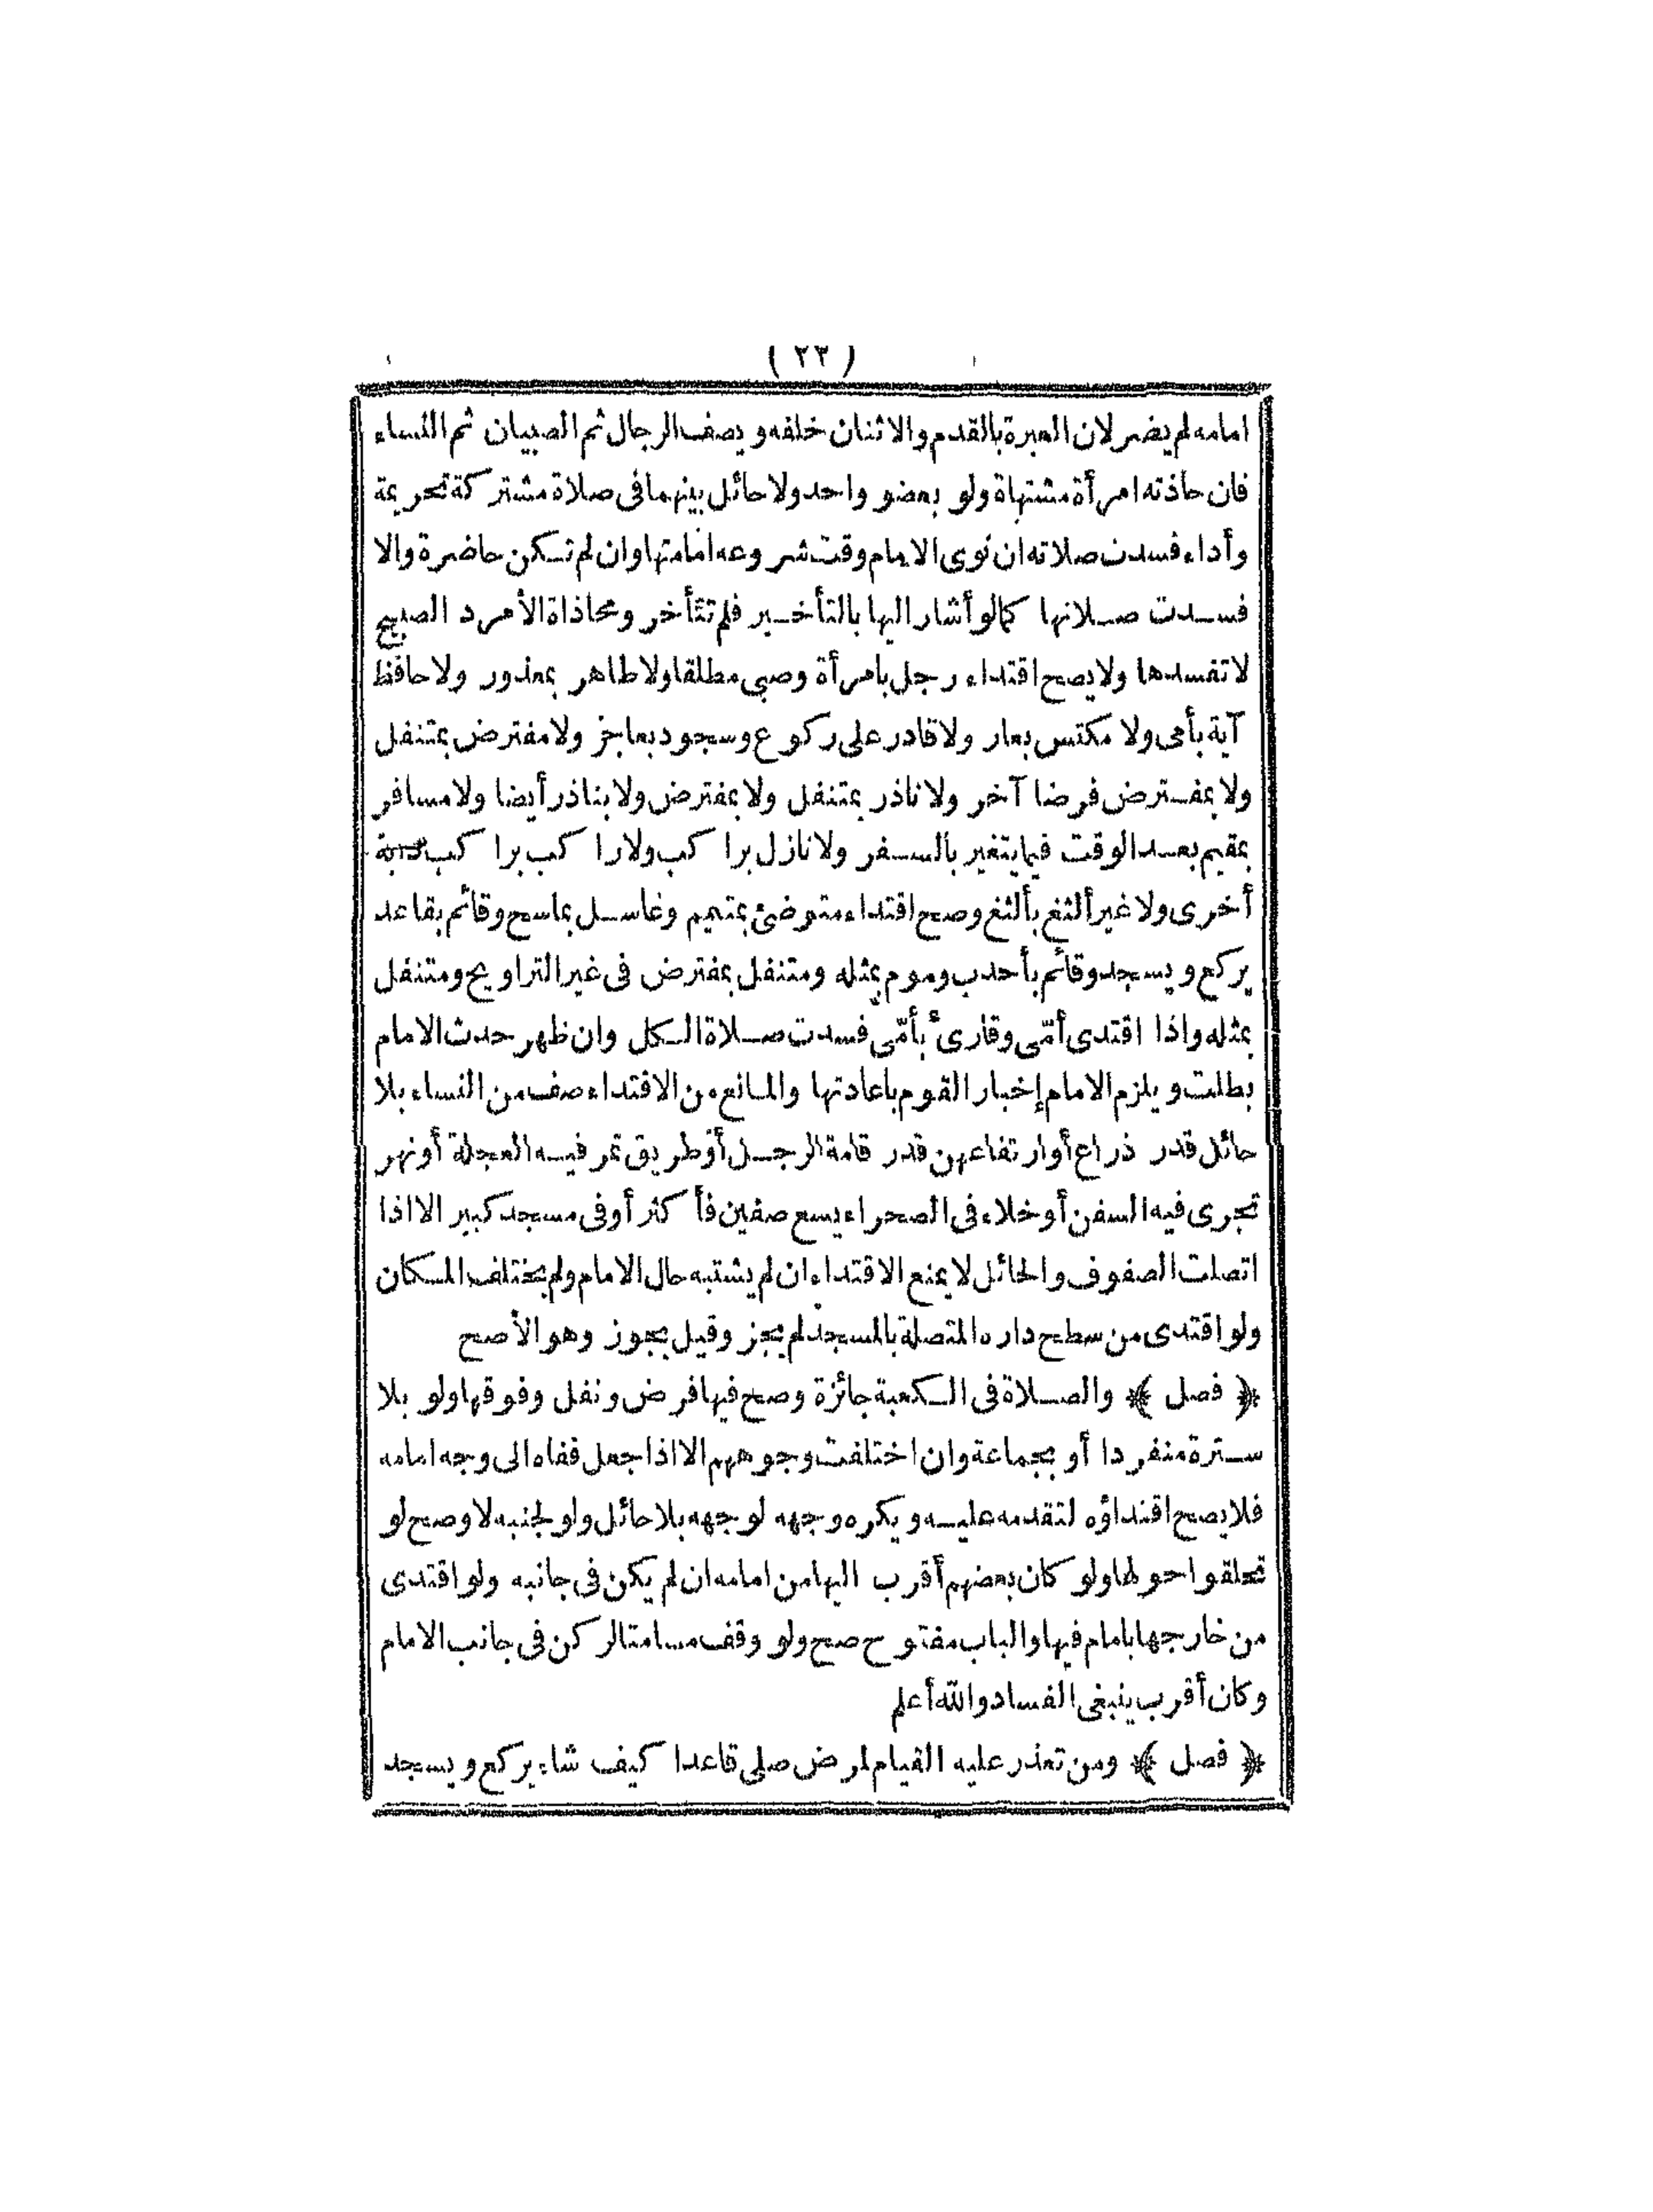 ( ٢٣ )
امامه لم يضر لان العبرة بالقدم والاثنان خلفه ويصف الرجال ثم الصبيان ثم النساء
فان حاذته امرأة مشتهاة ولو بعضو واحد ولا حائل بينهما فى صلاة مشتركة تحريمة
وأداء فسدت صلاته ان نوى الامام وقت شروعه امامتها وان لم تكن حاضرة والا
فسدت صلاتها كما لو أشار اليها بالتأخير فلم تتأخر ومحاذاة الأمرد الصبيح
لا تفسدها ولا يصح اقتداء رجل بامرأة وصبى مطلقا ولا طاهر بمعذور ولا حافظ
آية بأمى ولا مكتس بعار ولا قادر على ركوع وسجود بعاجز ولا مفترض بمتنفل
ولا بمفترض فرضا آخر ولا ناذر بمتنفل ولا بمفترض ولا بناذر أيضا ولا مسافر
بمقيم بعد الوقت فيما يتغير بالسفر ولا نازل براكب ولا راكب براكب دابة
أخرى ولا غير ألثغ بألثغ وصح اقتداء متوضئ بمتيمم وغاسل بماسح وقائم بقاعد
يركع ويسجد وقائم بأحدب وموم بمثله ومتنفل بمفترض فى غير التراويح ومتنفل
بمثله واذا اقتدى أمّى وقارئ بأمّى فسدت صلاة الكل وان ظهر حدث الامام
بطلت ويلزم الامام إخبار القوم باعادتها والمانع من الاقتداء صف من النساء بلا
حائل قدر ذراع أو ارتفاعهن قدر قامة الرجل أو طريق تمر فيه العجلة أو نهر
تجرى فيه السفن أو خلاء فى الصحراء يسع صفين فأكثر أو فى مسجد كبير الا اذا
اتصلت الصفوف والحائل لا يمنع الاقتداء ان لم يشتبه حال الامام ولم يختلف المكان
ولو اقتدى من سطح داره المتصلة بالمسجد لم يجز وقيل يجوز وهو الأصح
﴿ فصل ﴾ والصلاة فى الكعبة جائزة وصح فيها فرض ونفل وفوقها ولو بلا
سترة منفردا أو بجماعة وان اختلفت وجوههم الا اذا جعل قفاه الى وجه امامه
فلا يصح اقتداؤه لتقدمه عليه ويكره وجهه لوجهه بلا حائل ولو لجنبه لا وصح لو
تحلقوا حولها ولو كان بعضهم أقرب اليها من امامه ان لم يكن فى جانبه ولو اقتدى
من خارجها بامام فيها والباب مفتوح صح ولو وقف مسامتا لركن فى جانب الامام
وكان أقرب ينبغى الفساد والله أعلم
﴿ فصل ﴾ ومن تعذر عليه القيام لمرض صلى قاعدا كيف شاء يركع ويسجد